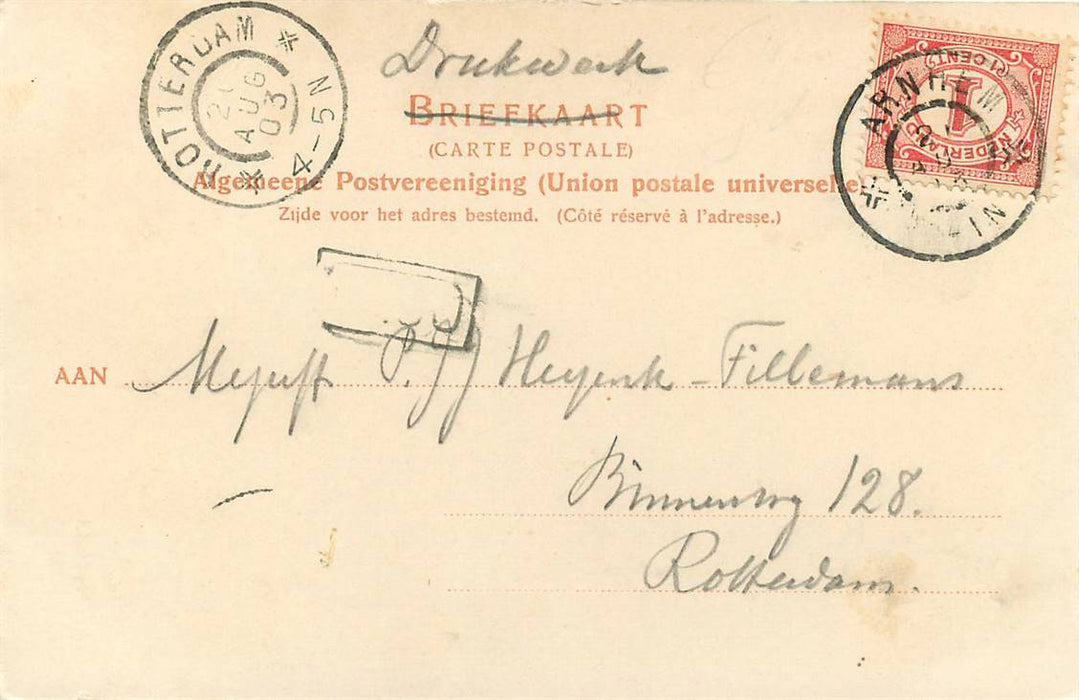 ROTTERDAM
AUG
03
4-5N
Drukwerk
BRIEFKAART
(CARTE POSTALE)
Algemeene Postvereeniging (Union postale universelle)
Zijde voor het adres bestemd. (Côté réservé à l'adresse.)
1
NEDERLAND
(1 CENT)
ARNHEM
AAN Mejuff P. JJ Heyenk - Fillemans
Binnenweg 128.
Rotterdam.